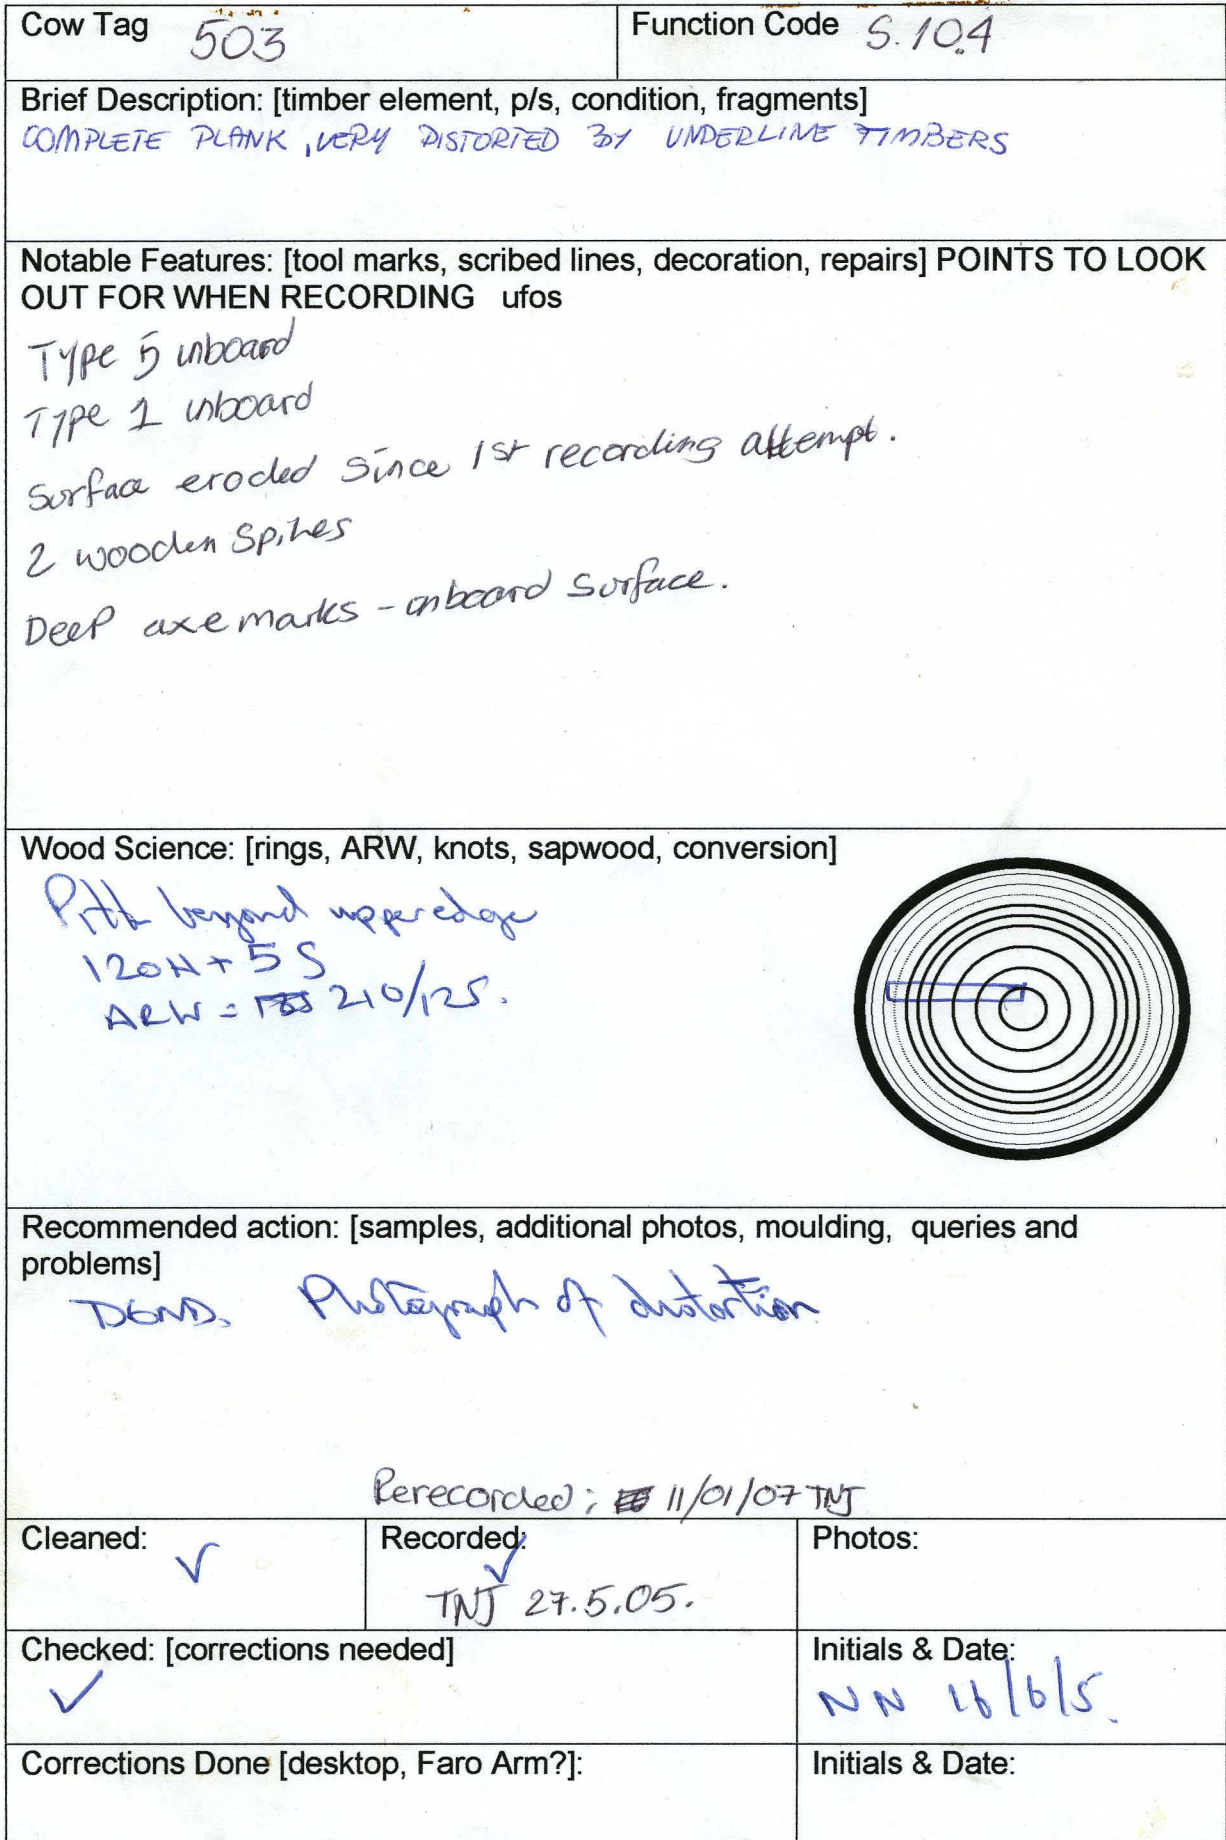 Cow Tag 503 Function Code S.10.4
Brief Description: [timber element, p/s, condition, fragments]
COMPLETE PLANK, VERY DISTORTED BY UNDERLINE TIMBERS
Notable Features: [tool marks, scribed lines, decoration, repairs] POINTS TO LOOK
OUT FOR WHEN RECORDING ufos
Type 5 inboard
Type 1 inboard
Surface eroded since 1st recording attempt.
2 wooden Spikes
Deep axe marks - onboard surface.
Wood Science: [rings, ARW, knots, sapwood, conversion]
Pith beyond upper edge
120H + 5 S
ARW = 210/125.
Recommended action: [samples, additional photos, moulding, queries and
problems]
Photograph of distortion
Rerecorded; 11/01/07 TNJ
Cleaned: ✓ Recorded: ✓ Photos:
TNJ 27.5.05.
Checked: [corrections needed] Initials & Date:
✓ NN 16/6/5.
Corrections Done [desktop, Faro Arm?]: Initials & Date: